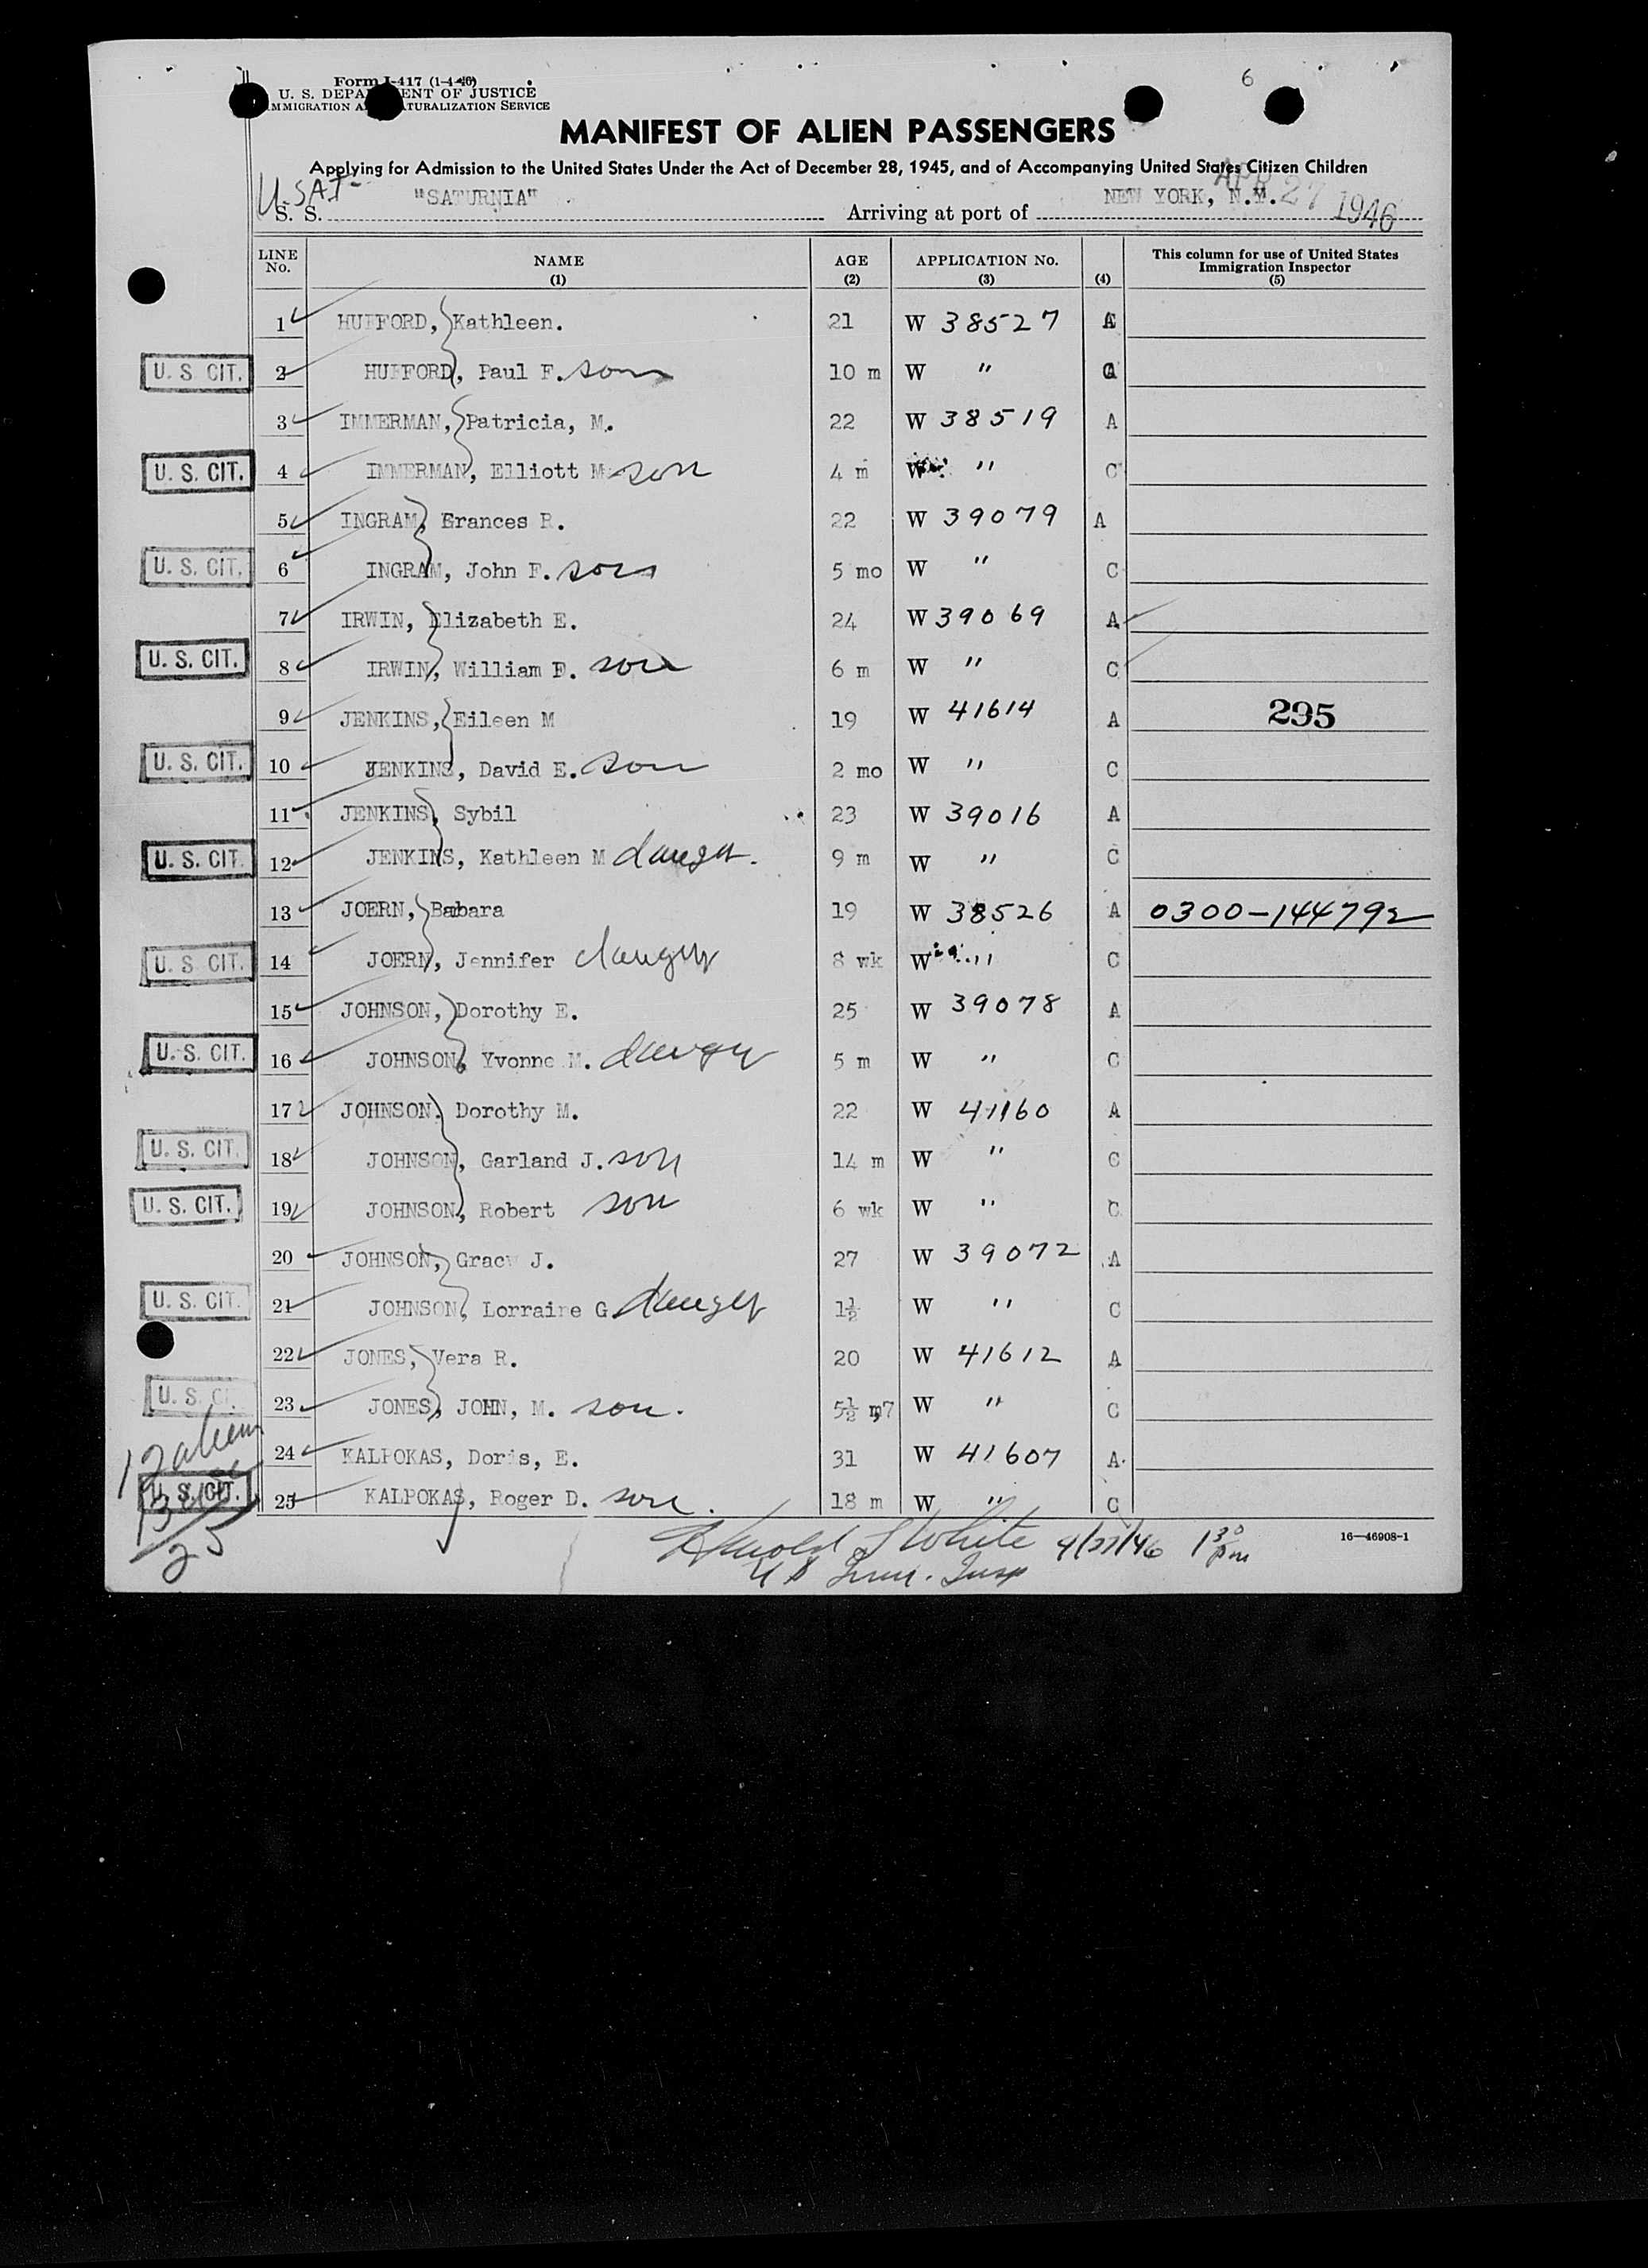 Form I-417 (1-4-46)
U. S. DEPA ENT OF JUSTICE
IMMIGRATION A TURALIZATION SERVICE
6
MANIFEST OF ALIEN PASSENGERS
Applying for Admission to the United States Under the Act of December 28, 1945, and of Accompanying United States Citizen Children
USAT-
S. S. "SATURNIA" Arriving at port of NEW YORK, N.Y. APR 27 1946
LINE No. NAME (1) AGE (2) APPLICATION No. (3) (4) This column for use of United States Immigration Inspector (5)
1 HUFFORD, Kathleen. 21 W 38527 A
U. S. CIT. 2 HUFFORD, Paul F. son 10 m W " C
3 IMMERMAN, Patricia, M. 22 W 38519 A
U. S. CIT. 4 IMMERMAN, Elliott M son 4 m W " C
5 INGRAM, Frances R. 22 W 39079 A
U. S. CIT. 6 INGRAM, John F. son 5 mo W " C
7 IRWIN, Elizabeth E. 24 W 39069 A
U. S. CIT. 8 IRWIN, William F. son 6 m W " C
9 JENKINS, Eileen M 19 W 41614 A 295
U. S. CIT. 10 JENKINS, David E. son 2 mo W " C
11 JENKINS, Sybil 23 W 39016 A
U. S. CIT. 12 JENKINS, Kathleen M 9 m W " C
13 JOERN, Babara 19 W 38526 A 0300-144792
U. S. CIT. 14 JOERN, Jennifer 8 wk W " C
15 JOHNSON, Dorothy E. 25 W 39078 A
U. S. CIT. 16 JOHNSON, Yvonne M. 5 m W " C
17 JOHNSON, Dorothy M. 22 W 41160 A
U. S. CIT. 18 JOHNSON, Garland J. son 14 m W " C
U. S. CIT. 19 JOHNSON, Robert son 6 wk W " C
20 JOHNSON, Grace J. 27 W 39072 A
U. S. CIT. 21 JOHNSON, Lorraine G. 1½ W " C
22 JONES, Vera R. 20 W 41612 A
U. S. CIT. 23 JONES, JOHN, M. son. 5½ m W " C
24 KALPOKAS, Doris, E. 31 W 41607 A
U. S. CIT. 25 KALPOKAS, Roger D. son. 18 m W " C
12 aliens
13 USC
25
Harold S White 4/27/46 1 30 pm
US Imm. Insp
16—46908-1